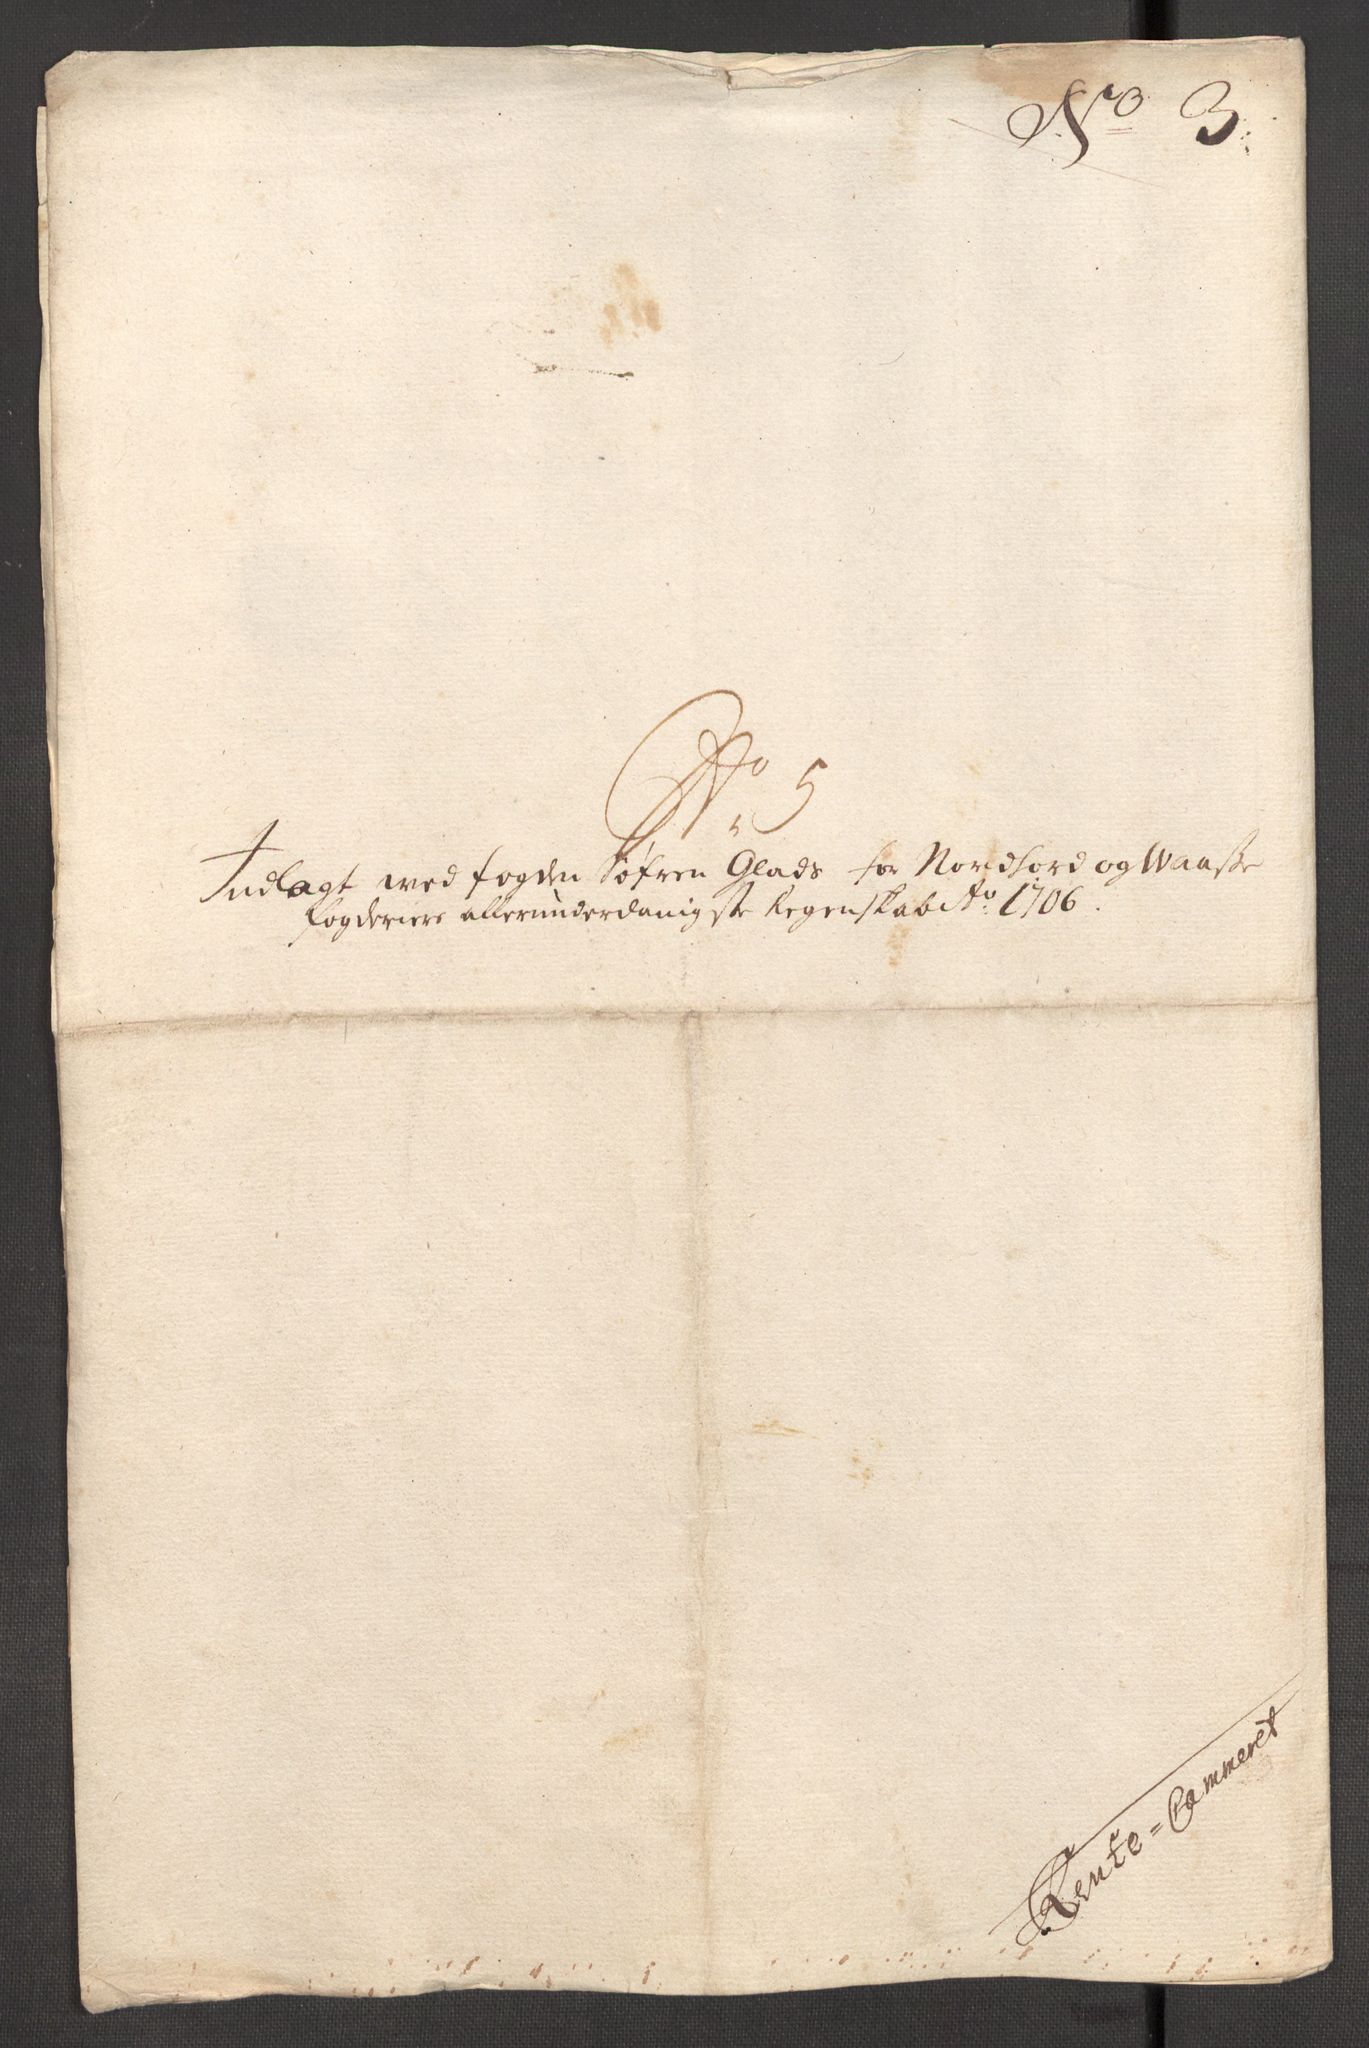 No 3.
No. 5
Indlagt med fogden Søfren Glads for Nordhord og Waaße
fogderiers allerunderdanigste Regenskab Ao: 1706.
Rente-Cammeret